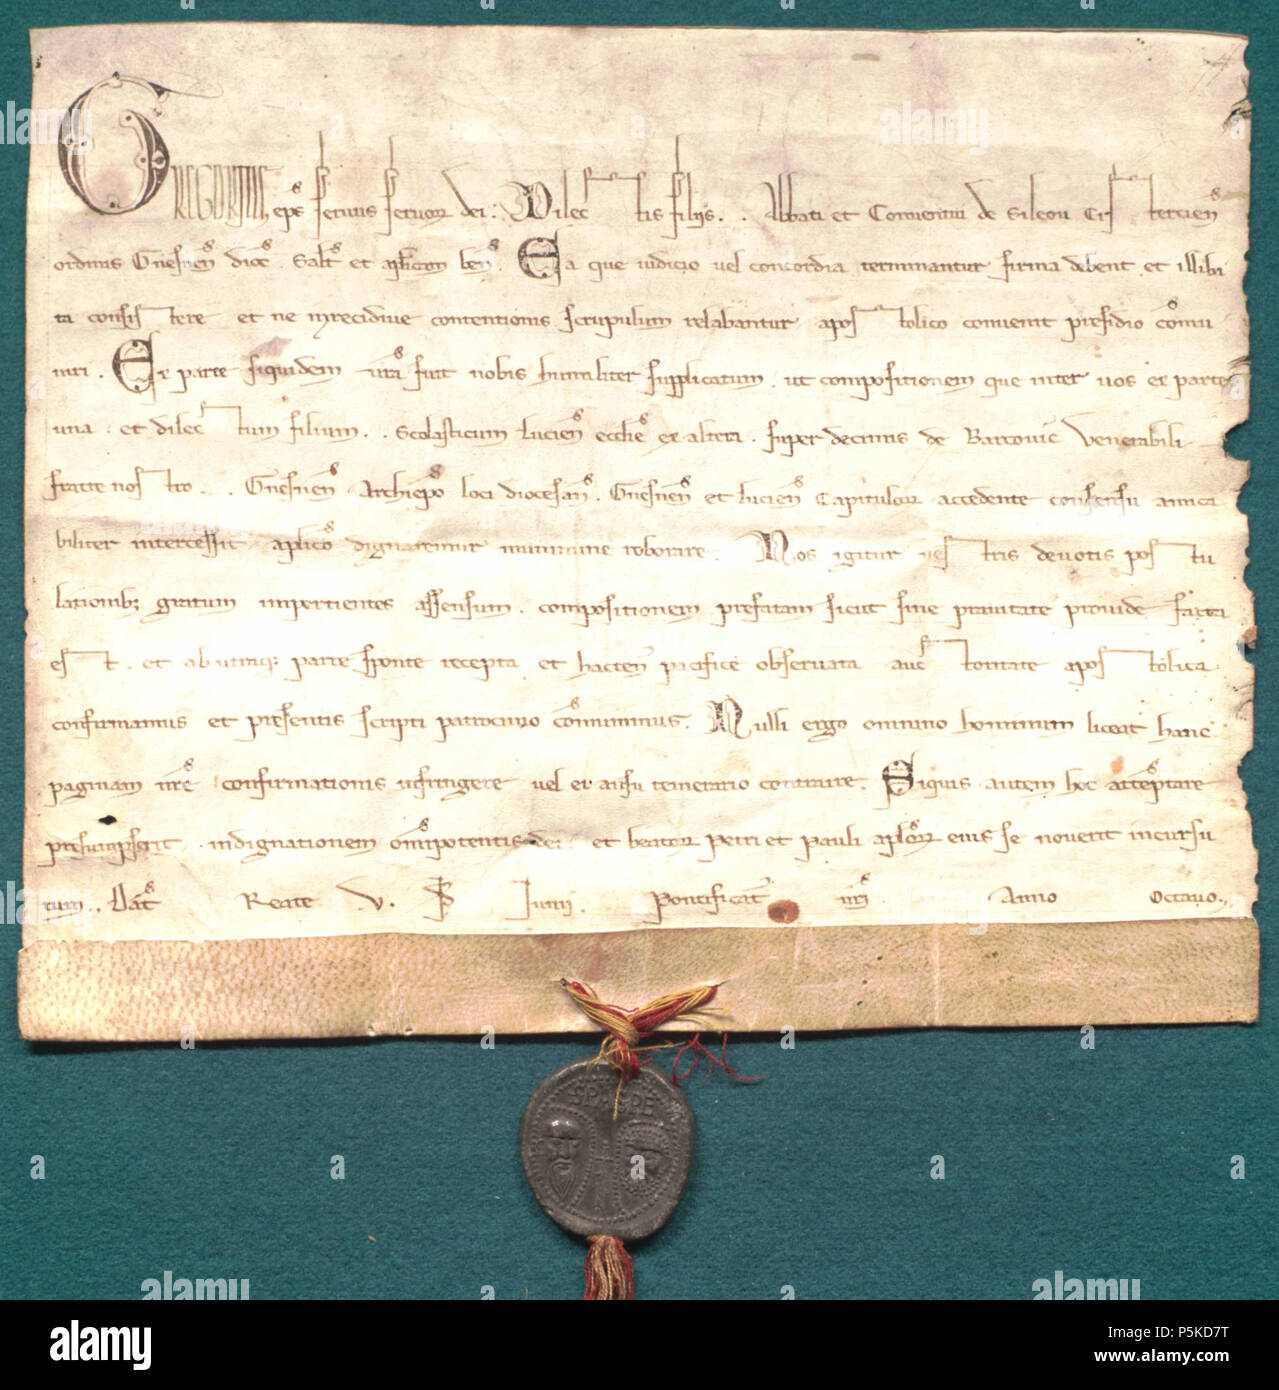 GREGORIUS, eps servus servor dei. Dilectis filiis. . Abbati et Conventui de Sileou Cistercien
ordinis Gnesnen dioc Salt et aplicam ben. Ea que iudicio vel concordia terminantur firma debent et illiba
ta consistere et ne in recidive contentionis scrupulum relabantur apostolico convenit presidio commu
niri. Ex parte siquidem vra fuit nobis humiliter supplicatum. ut compositionem que inter vos ex parte
una. et dilectum filium. . Scolasticum Lucien ecclie ex altera. super decimis de Barcovic venerabili
fratre nostro. . Gnesnen Archiepo loci diocesan. Gnesnen et Lucien Capitulor accedente consensu amica
biliter intercessit aplico dignaremur munimine roborare. Nos igitur vestris devotis postu
lationib; gratum impertientes assensum. compositionem prefatam sicut sine pravitate provide facta
est. et ab utraq; parte sponte recepta et hacten pacifice observata auctoritate apostolica
confirmamus et presentis scripti patrocinio communimus. Nulli ergo omnino hominum liceat hanc
paginam nre confirmationis infringere vel ei ausu temerario contraire. Siquis autem hoc attemptare
presumpserit. indignationem omipotentis dei. et beator Petri et Pauli aplor eius se noverit incursu
rum. Dat Reate V. Iunii. Pontificat nri Anno Octavo.
SPASPE
alamy
alamy
alamy
alamy
alamy
Image ID: P5KD7T
www.alamy.com